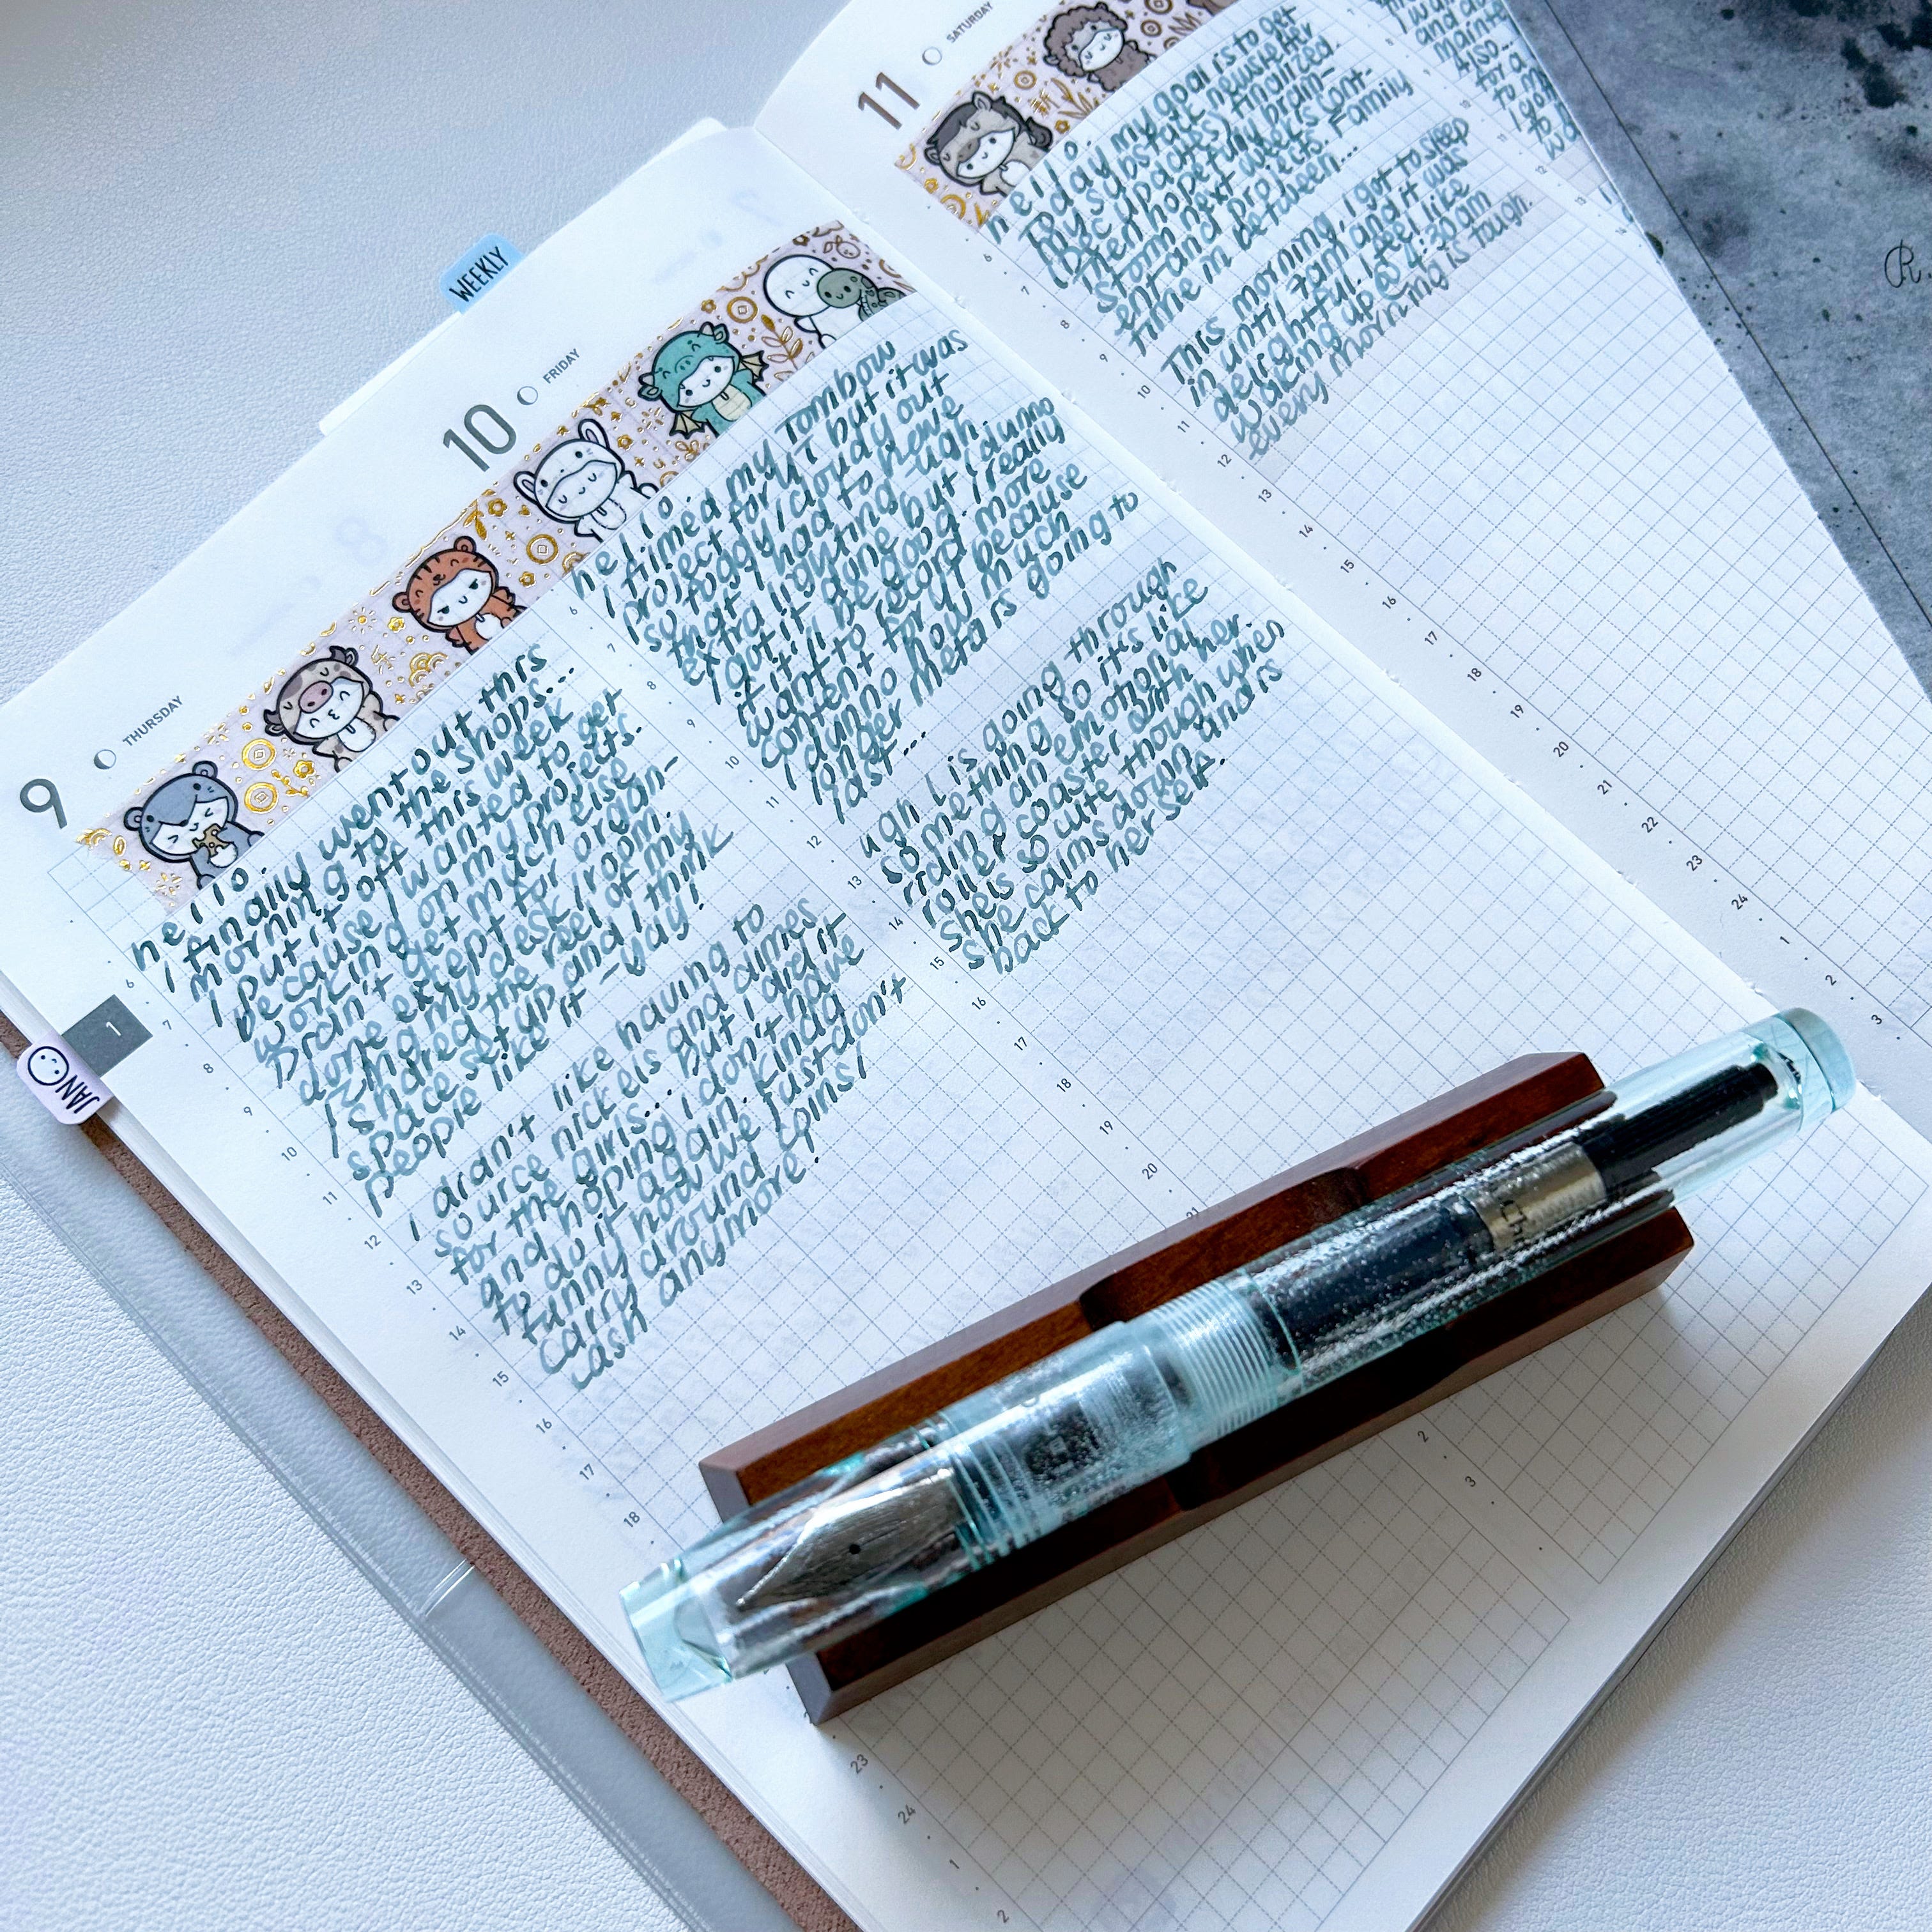 WEEKLY
JAN
1
9
THURSDAY
hello.
I finally went out this
morning to the shops...
I put it off this week
because I wanted to get
working on my projects.
Didn't get much else
done except for organ-
izing my desk/room.
I shared the reel of my
space set up and I think
people like it - yay!
I didn't like having to
source nickels and dimes
for the girls... but I did it
and hoping I don't have
to do it again. Kinda
funny how we just don't
carry around coins/
cash anymore!
10
FRIDAY
hello.
I filmed my Tombow
project for YT but it was
so foggy/cloudy out
that I had to have
extra lighting - ugh.
I got it done but I dunno
if it'll be good. I really
want to record more
content for YT because
I dunno how much
longer meta is going to
last...
ugh L is going through
something so it's like
riding an emotional
roller coaster with her.
She's so cute though when
she calms down and is
back to herself.
11
SATURDAY
hello.
Today my goal is to get
my substack newsletter
(Dec updates) finalized.
Then hopefully brain-
storm next week's cont-
ent and project. Family
time in between...
This morning, I got to sleep
in until 7am and it was
delightful. I feel like
waking up @ 4:30am
every morning is tough.
I wa
and
mainte
Also...
for a
to m
I got
to
wa
6
7
8
9
10
11
12
13
14
15
16
17
18
23
24
1
2
6
7
8
9
10
11
12
13
14
15
16
17
18
19
20
21
2
3
6
7
8
9
10
11
12
13
14
15
16
17
18
19
20
21
22
23
24
1
2
3
R